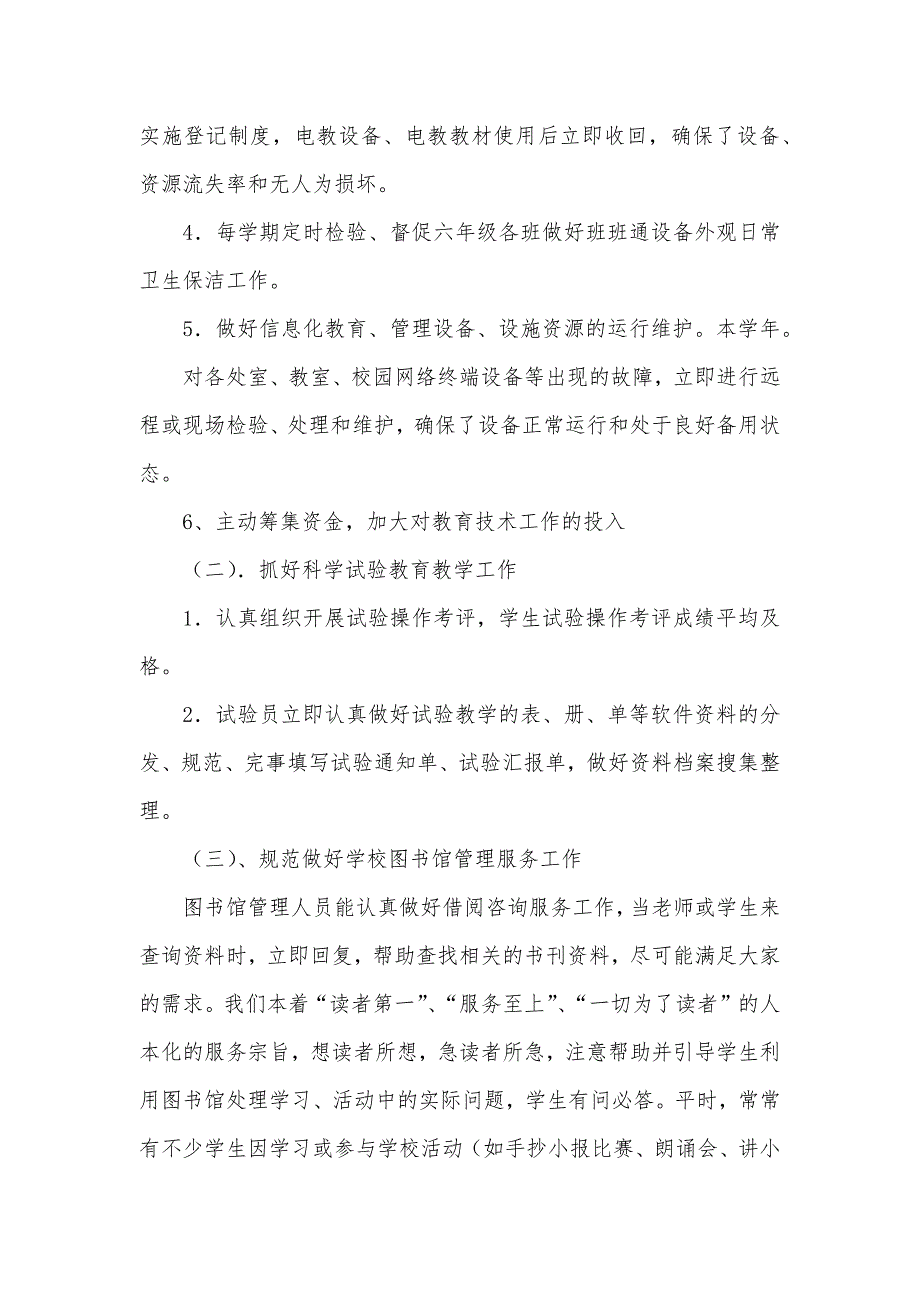 实施登记制度，电教设备、电教教材使用后立即收回，确保了设备、
资源流失率和无人为损坏。
4．每学期定时检验、督促六年级各班做好班班通设备外观日常
卫生保洁工作。
5．做好信息化教育、管理设备、设施资源的运行维护。本学年。
对各处室、教室、校园网络终端设备等出现的故障，立即进行远
程或现场检验、处理和维护，确保了设备正常运行和处于良好备用状
态。
6、主动筹集资金，加大对教育技术工作的投入
（二）．抓好科学试验教育教学工作
1．认真组织开展试验操作考评，学生试验操作考评成绩平均及
格。
2．试验员立即认真做好试验教学的表、册、单等软件资料的分
发、规范、完事填写试验通知单、试验汇报单，做好资料档案搜集整
理。
（三）、规范做好学校图书馆管理服务工作
图书馆管理人员能认真做好借阅咨询服务工作，当老师或学生来
查询资料时，立即回复，帮助查找相关的书刊资料，尽可能满足大家
的需求。我们本着“读者第一”、“服务至上”、“一切为了读者”的人
本化的服务宗旨，想读者所想，急读者所急，注意帮助并引导学生利
用图书馆处理学习、活动中的实际问题，学生有问必答。平时，常常
有不少学生因学习或参与学校活动（如手抄小报比赛、朗诵会、讲小